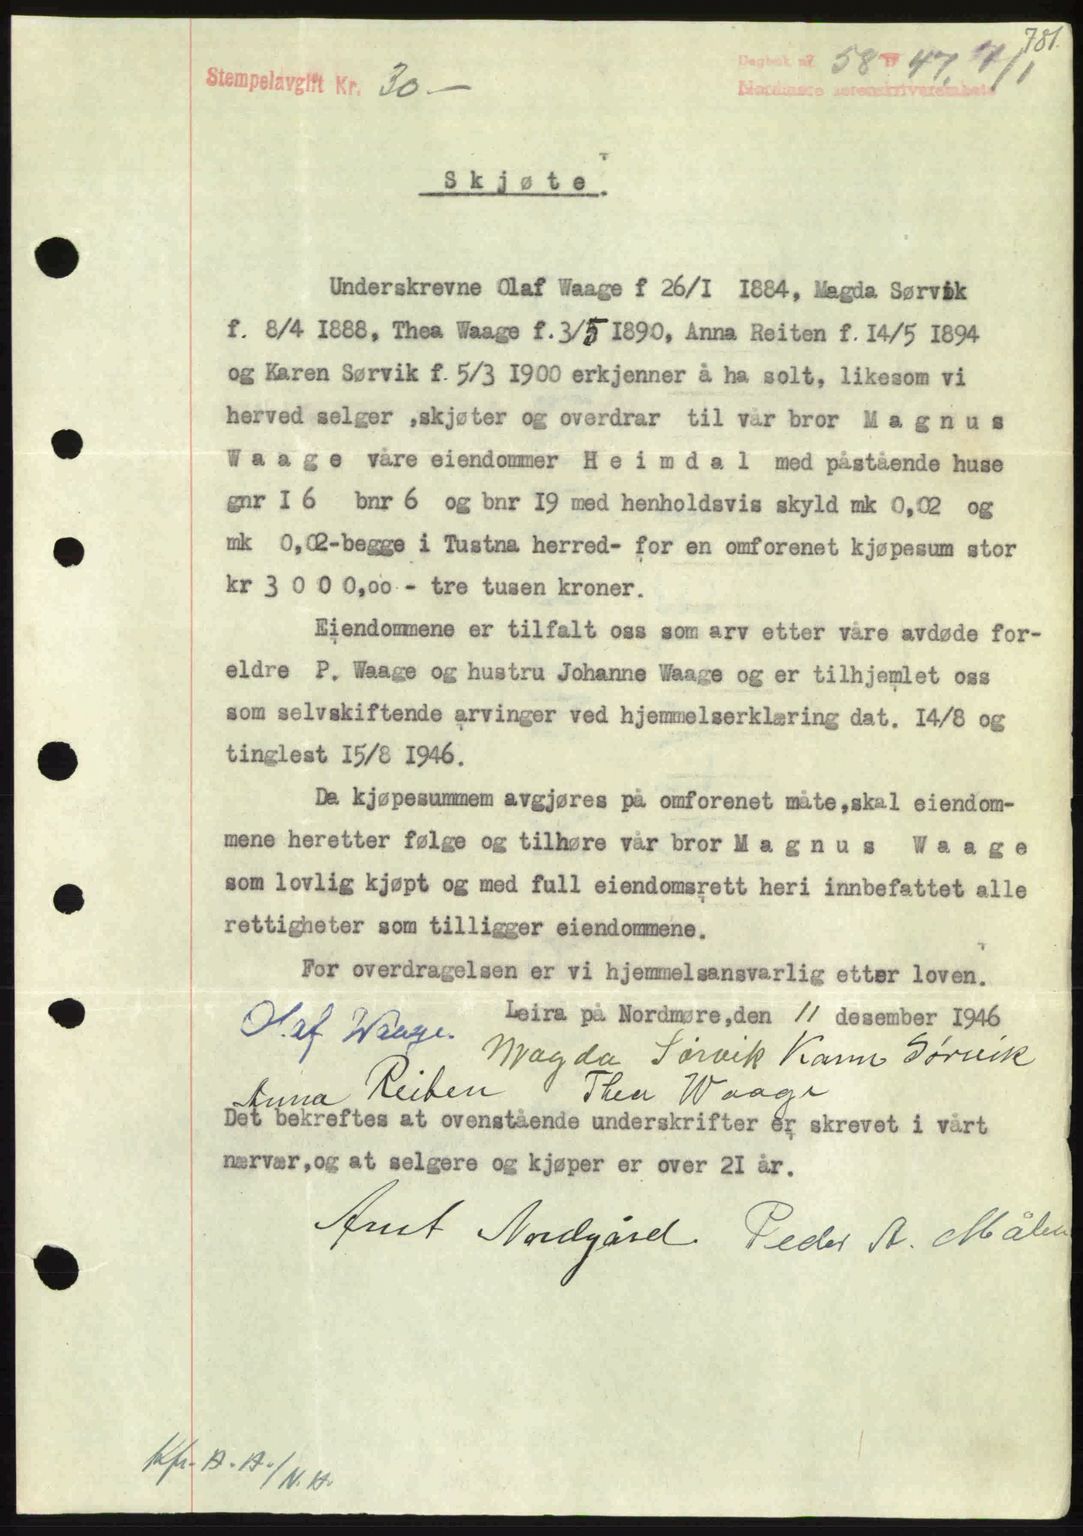 781.
Stempelavgift Kr. 30 —
Dagbok nr 58 47. 7/1
Nordmøre sorenskriverembete
Skjøte.
Underskrevne Olaf Waage f 26/I I884, Magda Sørvik
f. 8/4 I888, Thea Waage f.3/5 I890, Anna Reiten f. I4/5 I894
og Karen Sørvik f. 5/3 I900 erkjenner å ha solt, likesom vi
herved selger ,skjøter og overdrar til vår bror M a g n u s
W a a g e våre eiendommer H e i m d a l med påstående huse
gnr I 6 bnr 6 og bnr I9 med henholdsvis skyld mk 0,02 og
mk 0,02-begge i Tustna herred- for en omforenet kjøpesum stor
kr 3 0 0 0,oo - tre tusen kroner.
Eiendommene er tilfalt oss som arv etter våre avdøde for-
eldre P. Waage og hustru Johanne Waage og er tilhjemlet oss
som selvskiftende arvinger ved hjemmelserklæring dat. I4/8 og
tinglest I5/8 I946.
Da kjøpesummem avgjøres på omforenet måte,skal eiendom-
mene heretter følge og tilhøre vår bror M a g n u s W a a g e
som lovlig kjøpt og med full eiendomsrett heri innbefattet alle
rettigheter som tilligger eiendommene.
For overdragelsen er vi hjemmelsansvarlig etter loven.
Leira på Nordmøre,den 11 desember I946
Olaf Waage.
Magda Sørvik Karen Sørvik
Anna Reiten Thea Waage
Det bekreftes at ovenstående underskrifter er skrevet i vårt
nærvær,og at selgere og kjøper er over 2I år.
Arnt Nordgård. Peder A. Målen
Kfr. A. A./N. A.